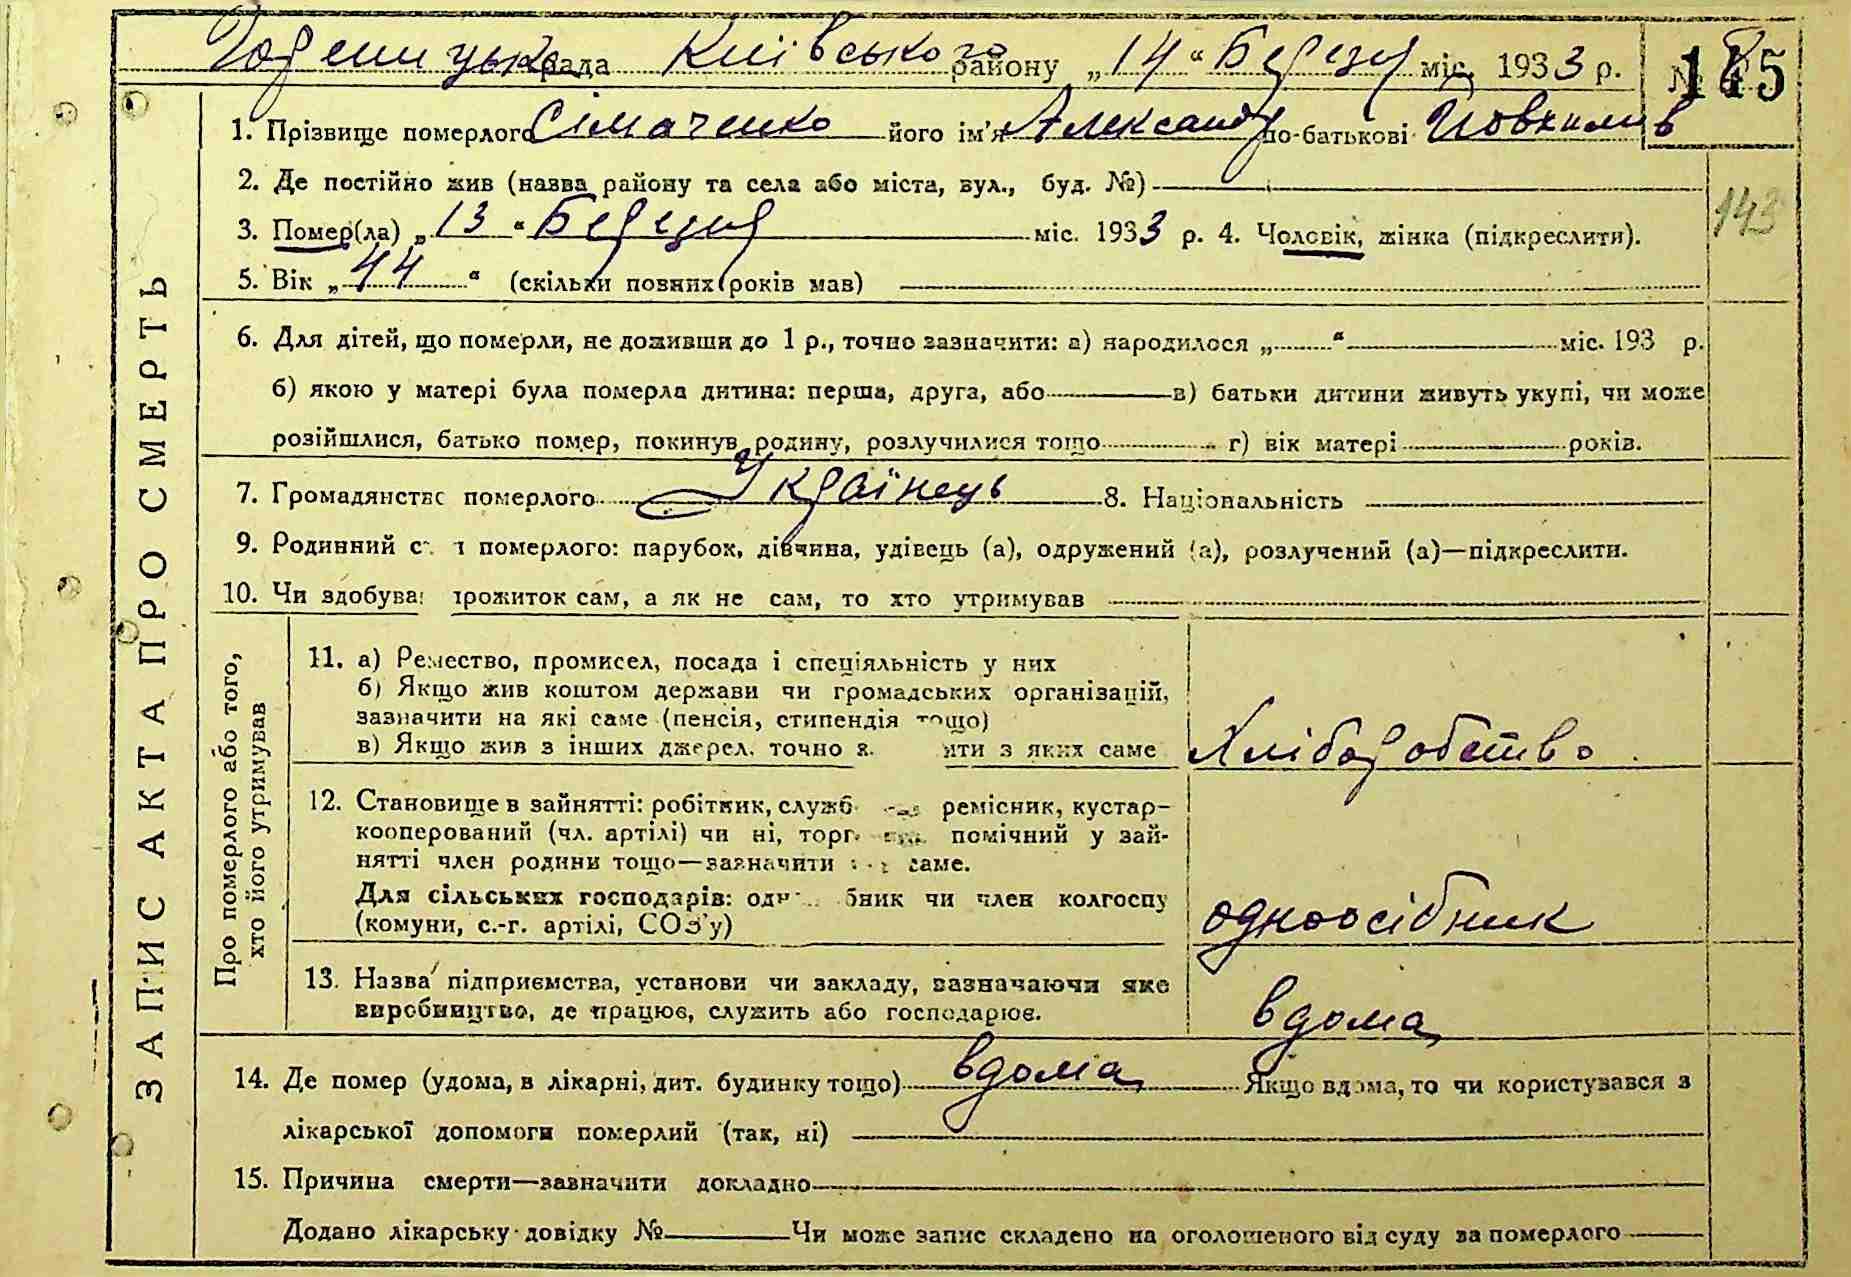 Гореницька рада Київського району „14“ Березня міс. 1933 р. № 145
1. Прізвище померлого Сімаченко його ім'я Александр по-батькові Йовхимів
2. Де постійно жив (назва району та села або міста, вул., буд. №)
143
3. Помер(ла) „13“ Березня міс. 1933 р. 4. Чоловік, жінка (підкреслити).
5. Вік „44“ (скільки повних років мав)
6. Для дітей, що померли, не доживши до 1 р., точно зазначити: а) народилося „ “ міс. 193 р.
б) якою у матері була померла дитина: перша, друга, або в) батьки дитини живуть укупі, чи може
розійшлися, батько помер, покинув родину, розлучилися тощо г) вік матері років.
7. Громадянство померлого Українець 8. Національність
9. Родинний ст н померлого: парубок, дівчина, удівець (а), одружений (а), розлучений (а)—підкреслити.
10. Чи здобував прожиток сам, а як не сам, то хто утримував
ЗАПИС АКТА ПРО СМЕРТЬ
Про померлого або того,
хто його утримував
11. а) Ремество, промисел, посада і спеціяльність у них
б) Якщо жив коштом держави чи громадських організацій,
зазначити на які саме (пенсія, стипендія тощо)
в) Якщо жив з інших джерел, точно з ити з яких саме
Хліборобство
12. Становище в зайнятті: робітник, служб ремісник, кустар-
кооперований (чл. артілі) чи ні, торг помічний у зай-
нятті член родини тощо—зазначити саме.
Для сільських господарів: одн бник чи член колгоспу
(комуни, с.-г. артілі, СОЗ'у)
одноосібник
13. Назва підприємства, установи чи закладу, зазначаючи яке
виробництво, де працює, служить або господарює.
вдома
14. Де помер (удома, в лікарні, дит. будинку тощо) вдома Якщо вдома, то чи користувався з
лікарської допомоги померлий (так, ні)
15. Причина смерти—зазначити докладно
Додано лікарську довідку № Чи може запис складено на оголошеного від суду за померлого